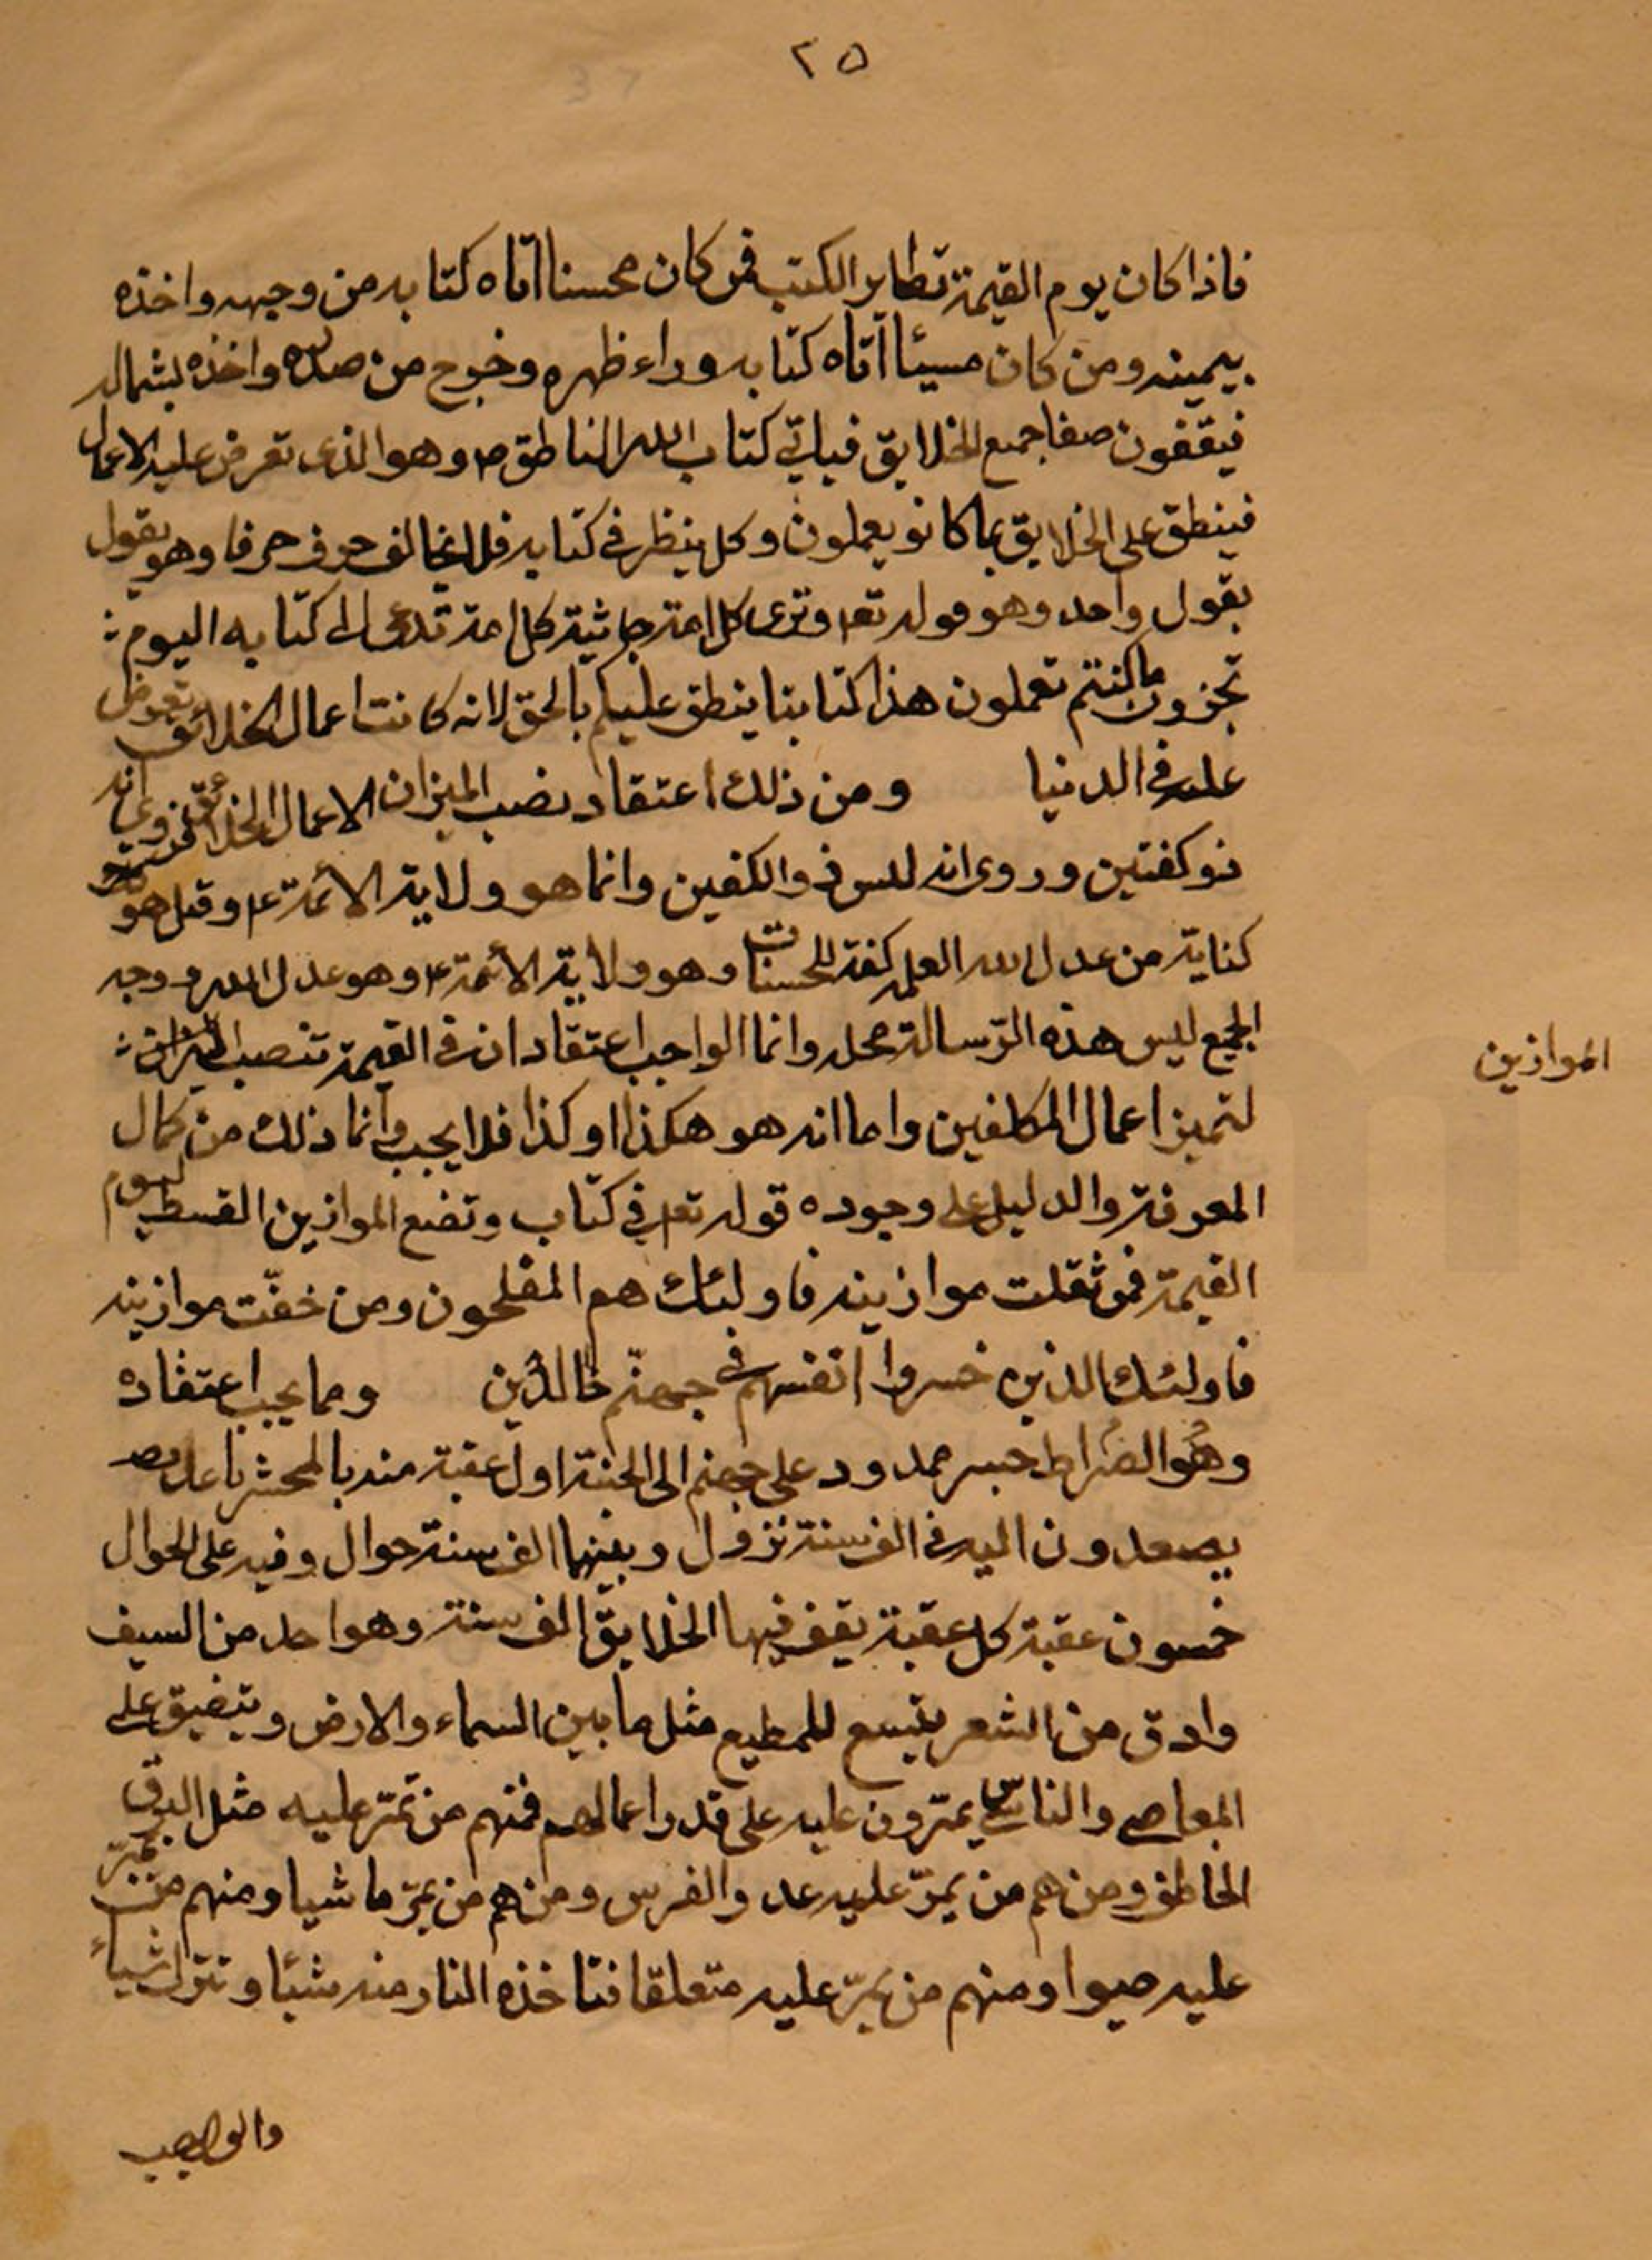 ٢٥
37
فاذا كان يوم القيمة تطاير الكتب فمن كان محسنا اتاه كتابه من وجهه واخذه
بيمينه ومن كان مسيئا اتاه كتابه وراء ظهره وخرج من صدره واخذه بشماله
فيقفون صفا جميع الخلايق فياتي كتاب الله الناطق ع وهو الذى تعرض عليه الاعمال
فينطق على الخلايق بما كانو يعملون وكل ينظر في كتابه فلا يخالف حرف حرفا وهو يقول
بقول واحد وهو قوله تعا وترى كل امة جاثية كل امة تدعى الى كتابه اليوم
تجزون ما كنتم تعملون هذا كتابنا ينطق عليكم بالحق لانه كانت اعمال الخلائق تعرض
عليه في الدنيا ومن ذلك اعتقاد نصب الميزان الاعمال الخلائق فروى انه
ذو كفتين وروى انه ليس ذو الكفين وانما هو ولاية الأئمة ع وقيل هو
كناية من عدل الله العلم كفة الحسنات وهو ولاية الأئمة ع وهو عدل الله ووجه
الجمع ليس هذه الرّسالة محله وانما الواجب اعتقاد ان في القيمة تنصب الميزان
الموازين
لتميز اعمال المكلفين واما انه هو هكذا او كذا فلا يجب وانما ذلك من كمال
المعرفة والدليل على وجوده قوله تعا في كتاب وتضع الموازين القسط ليوم
القيمة فمن ثقلت موازينه فاولئك هم المفلحون ومن خفّت موازينه
فاولئك الذين خسروا انفسهم في جهنّم خالدين ومما يجب اعتقاده
وهو الصّراط جسر ممدود على جهنم الى الجنة اول عقبة منه بالمحشر
يصعدون اليه في الف سنة نزول وبينهما الف سنة حوال وفيه على الحوال
خمسون عقبة كل عقبة يقف فيها الخلايق الف سنة وهو احد من السيف
وادق من الشعر يتسع للمطيع مثل ما بين السماء والارض ويتضيق على
المعاصى والناس يمرّون عليه على قدر اعمالهم فمنهم من يمّر عليه مثل البرق
الخاطف ومن هم من يمرّ عليه عدو الفرس ومن هم من يمرّ ماشيا ومنهم من يمرّ
عليه حبوا ومنهم من يمرّ عليه متعلقا فتاخذه النار منه شيئا وتترك شيأ
والواجب